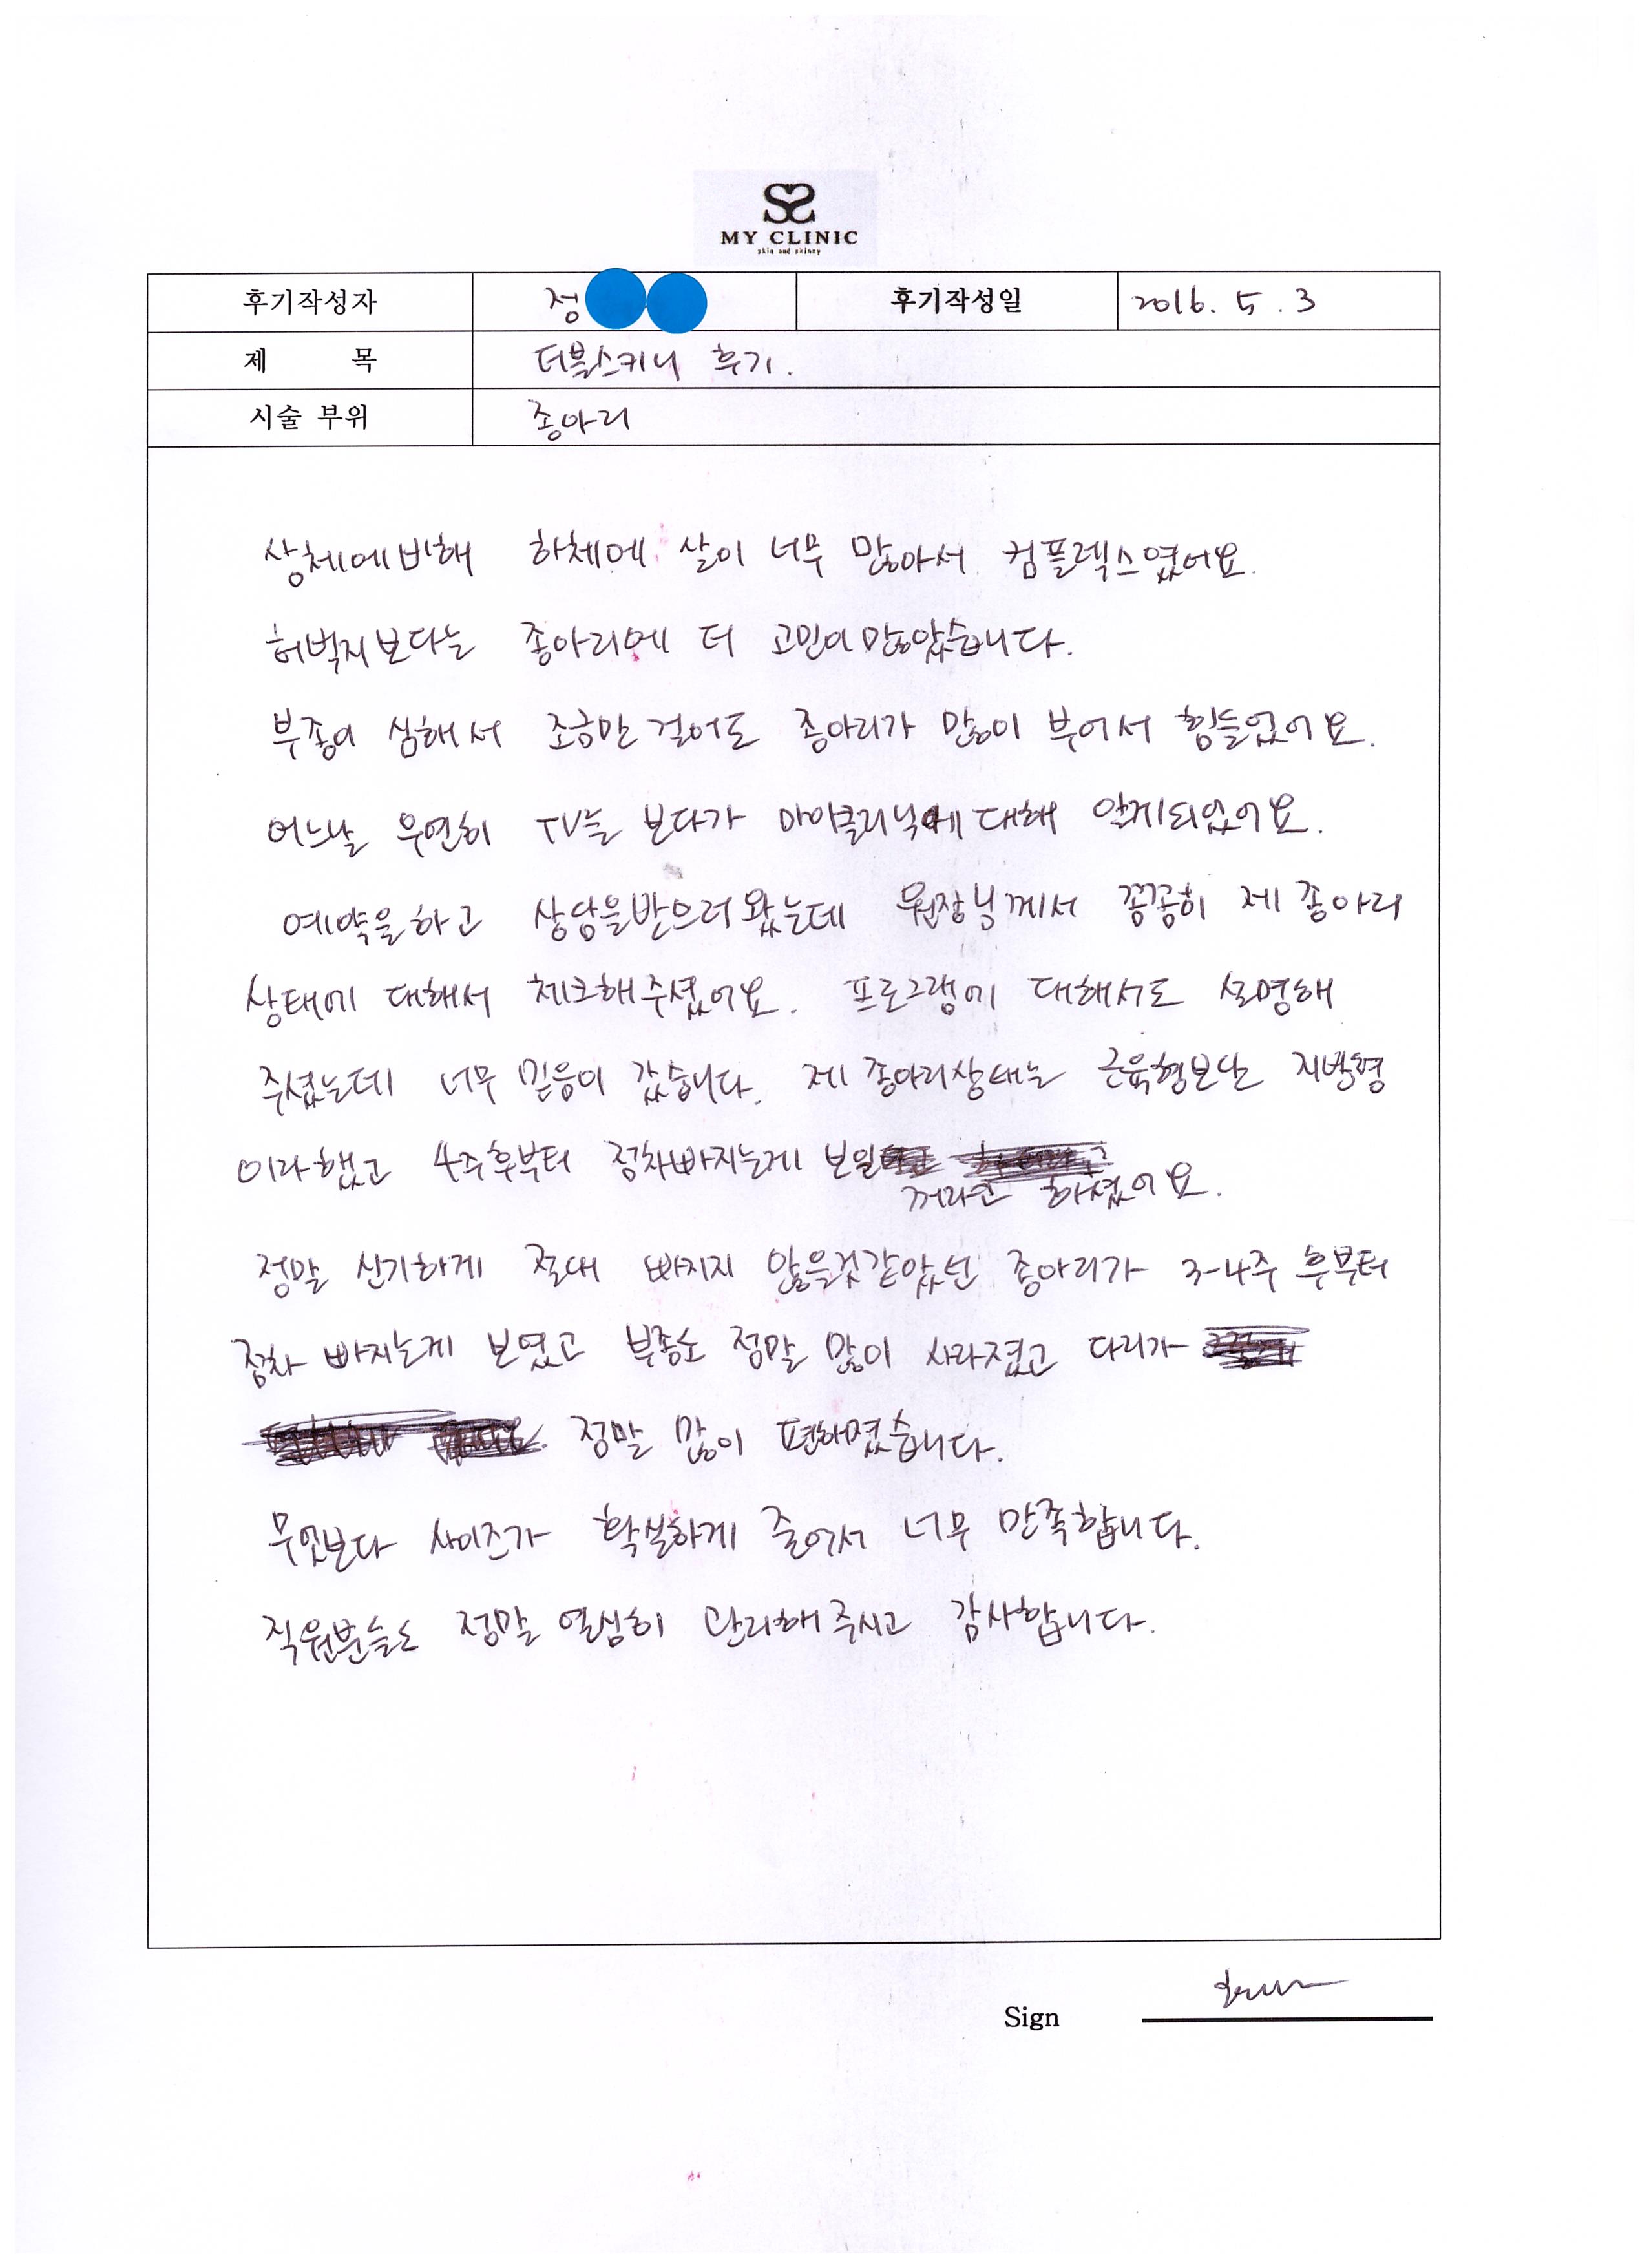 MY CLINIC
skin and skinny
후기작성자 정 후기작성일 2016. 5. 3
제 목 더블스키니 후기.
시술 부위 종아리
상체에비해 하체에 살이 너무 많아서 컴플렉스였어요.
허벅지보다는 종아리에 더 고민이많았습니다.
부종이 심해서 조금만 걸어도 종아리가 많이 부어서 힘들었어요.
어느날 우연히 TV를 보다가 마이클리닉에 대해 알게되었어요.
예약을하고 상담을받으러왔는데 원장님께서 꼼꼼히 제 종아리
상태에 대해서 체크해주셨어요. 프로그램에 대해서도 설명해
주셨는데 너무 믿음이 갔습니다. 제 종아리상태는 근육형보단 지방형
이라했고 4주후부터 점차빠지는게 보일
꺼라고 하셨어요.
정말 신기하게 절대 빠지지 않을것같았던 종아리가 3-4주 후부터
점차 빠지는게 보였고 부종도 정말 많이 사라졌고 다리가
정말 많이 편해졌습니다.
무엇보다 사이즈가 확실하게 줄어서 너무 만족합니다.
직원분들도 정말 열심히 관리해주시고 감사합니다.
Sign